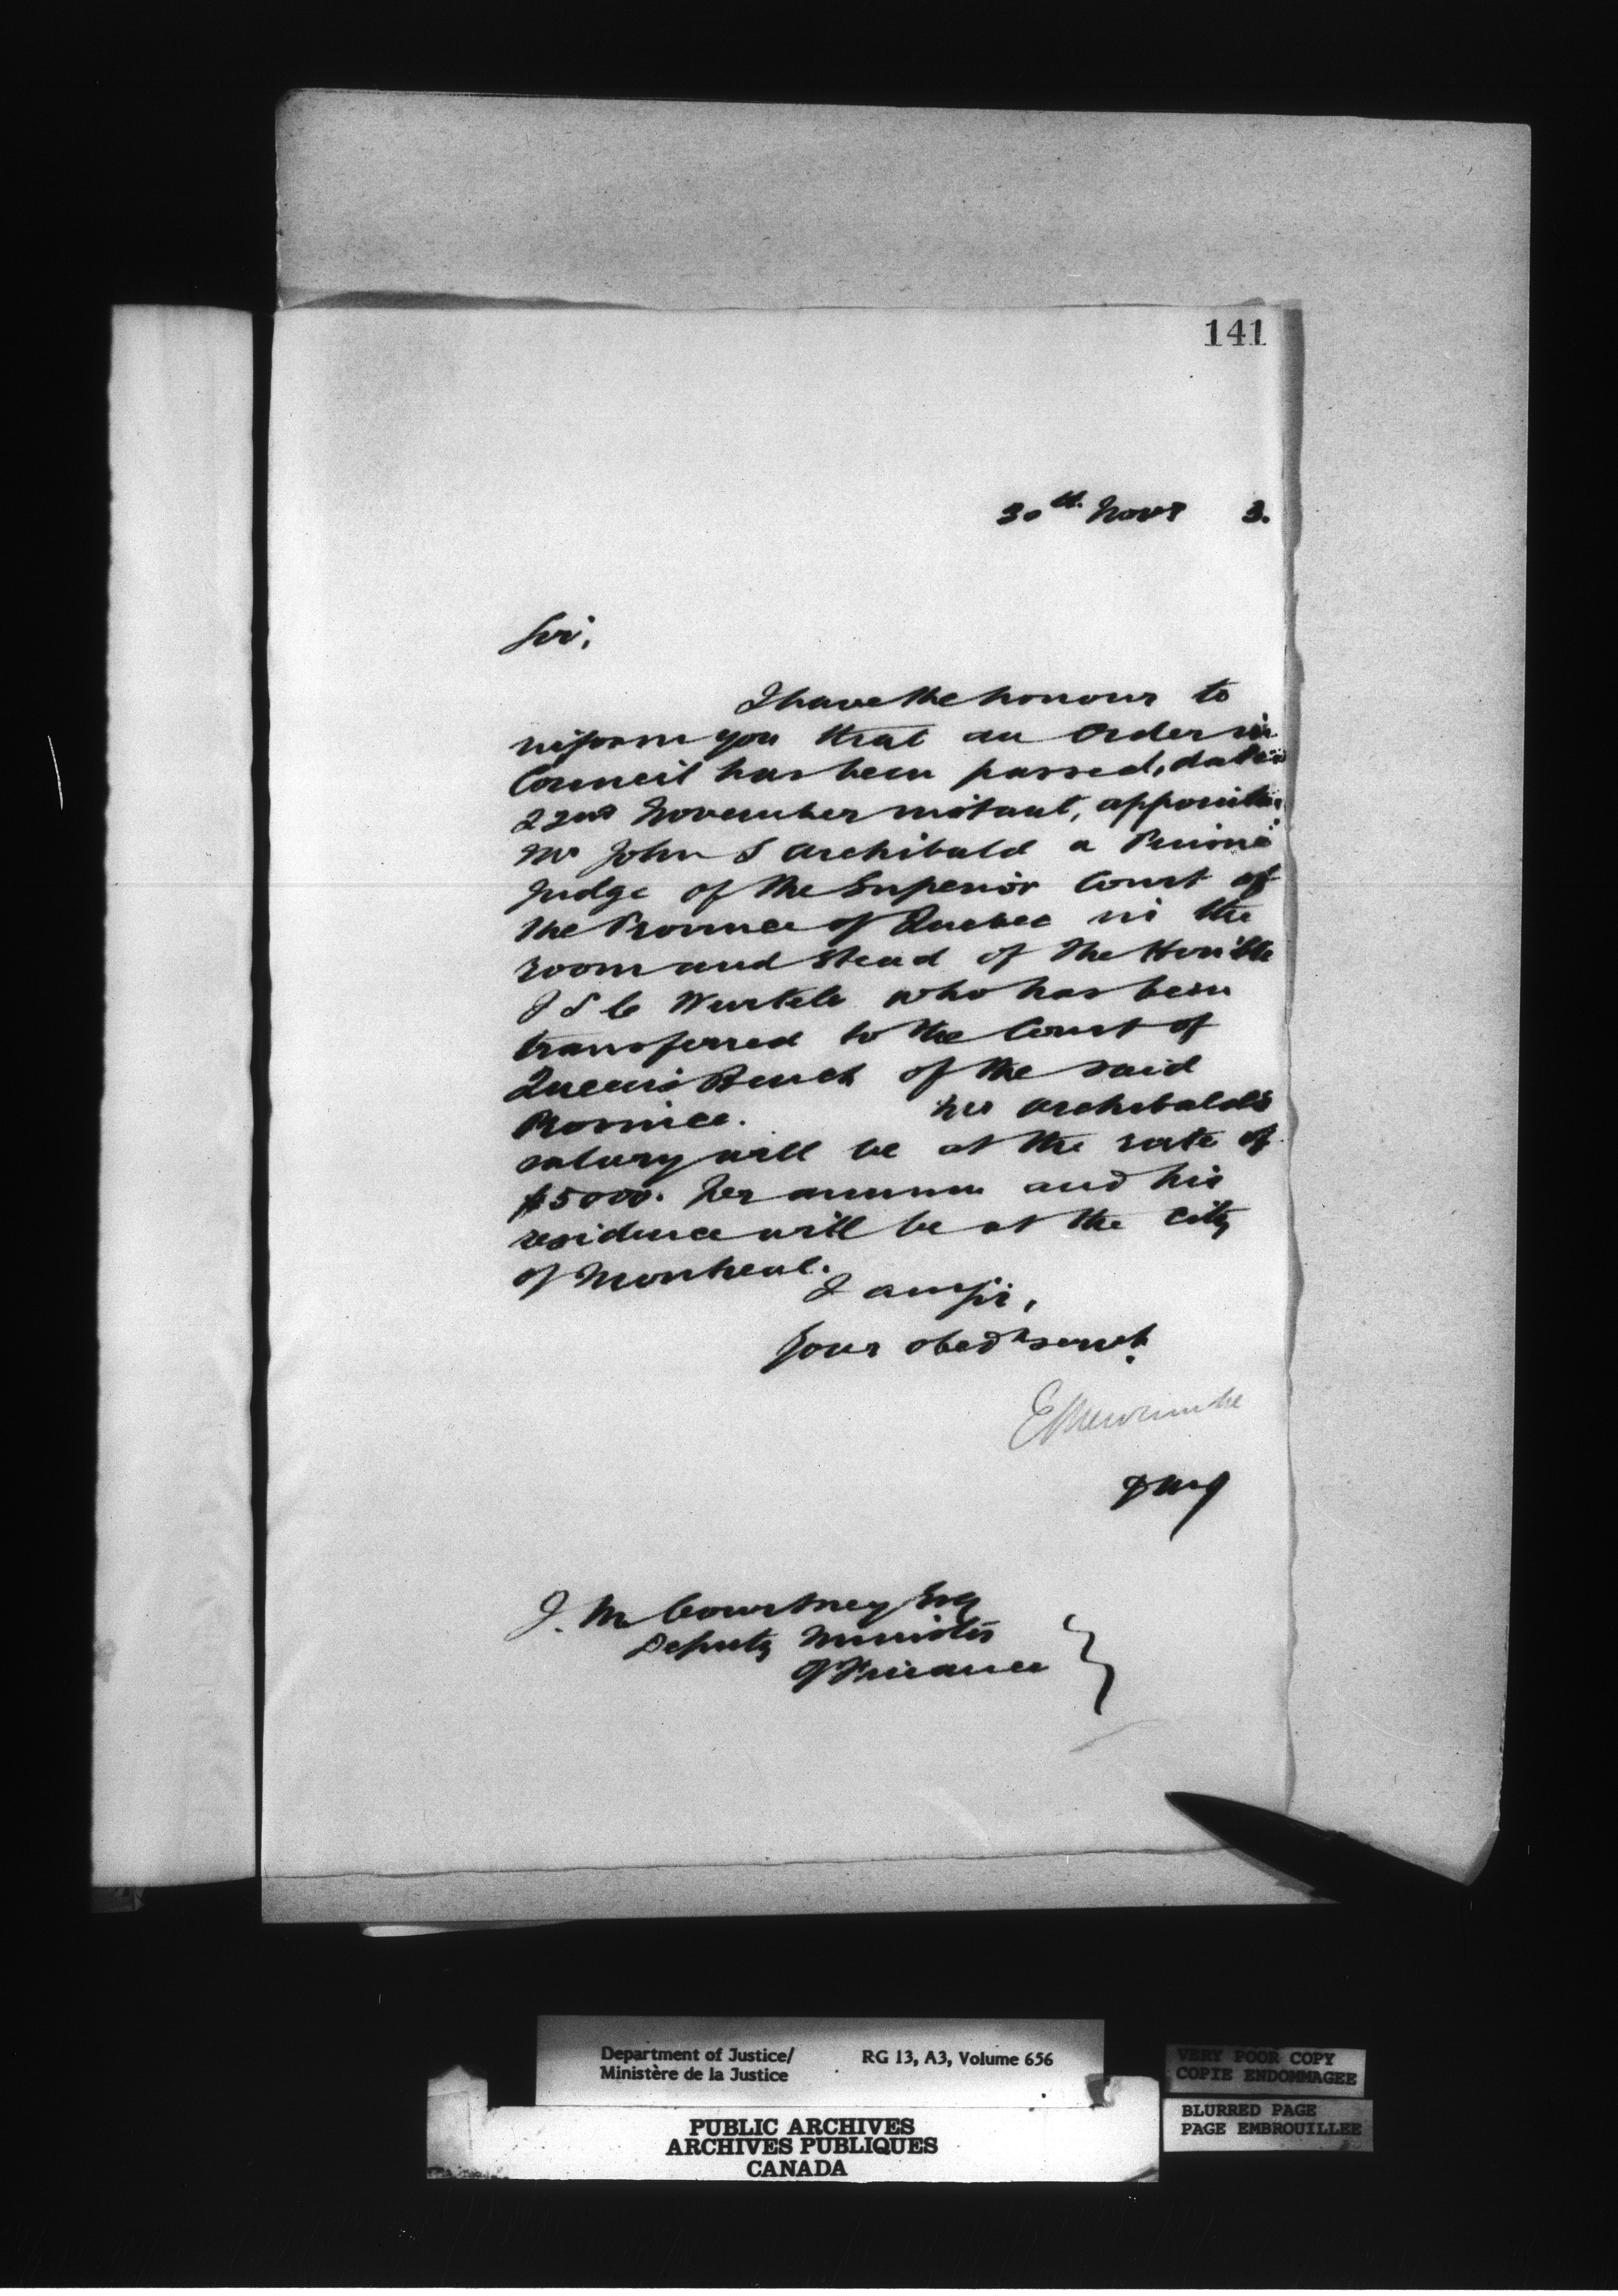 141
30th Novr 3.
Sir,
I have the honour to
inform you that an Order in
Council has been passed, dated
22nd November instant, appointing
Mr John S Archibald a Puisne
Judge of the Superior Court of
the Province of Quebec in the
room and stead of the Hon'ble
J S C Wurtele who has been
transferred to the Court of
Queen's Bench of the said
Province. Mr Archibald's
salary will be at the rate of
$5000. per annum and his
residence will be at the city
of Montreal.
I am Sir,
Your obedt servt.
E L Newcombe
DMJ
J. M. Courtney Esq
Deputy Minister
of Finance
Department of Justice/
Ministère de la Justice
RG 13, A3, Volume 656
PUBLIC ARCHIVES
ARCHIVES PUBLIQUES
CANADA
VERY POOR COPY
COPIE ENDOMMAGEE
BLURRED PAGE
PAGE EMBROUILLEE